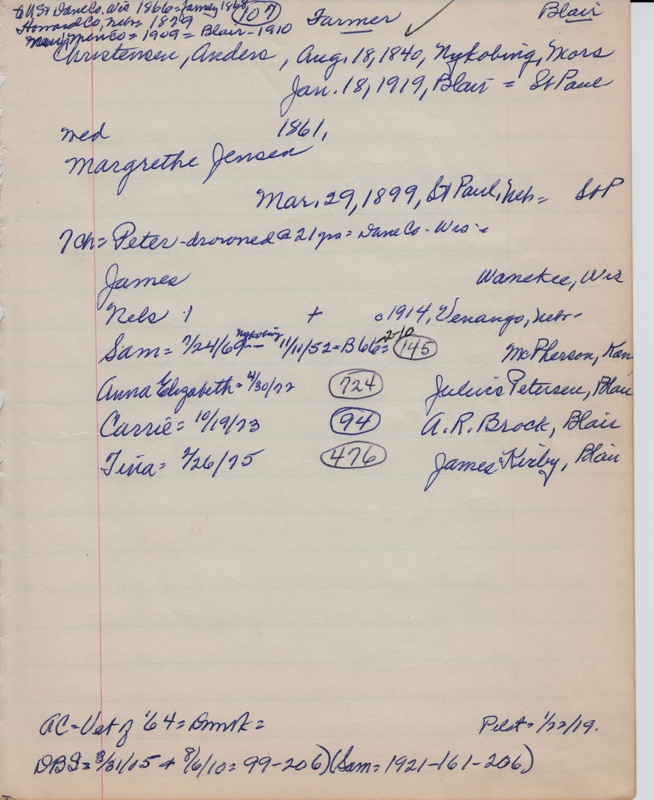 to U.S. Dane Co, Wis 1866 = family 1868 (107) Farmer Blair
Howard Co, Neb = 1879
New Mexico = 1909 = Blair - 1910
Christensen, Anders, Aug. 18, 1840, Nykobing, Mors
Jan. 18, 1919, Blair = St Paul
med 1861,
Margrethe Jensen
Mar. 29, 1899, St Paul, Neb = St P
7 ch = Peter - drowned @ 21 yrs = Dane Co - Wis -
James Wanekee, Wis
Nels + c 1914, Venango, Nebr -
Sam = 7/24/69 - Nykobing 11/11/52 - B 66 = 2-10 (145) McPherson, Kan
Anna Elizabeth = 4/30/72 (724) Julius Petersen, Blair
Carrie = 10/19/73 (94) A. R. Brock, Blair
Tina = 2/26/75 (476) James Kirby, Blair
AC = Vet of '64 = Dnmk = Pilot = 1/22/19.
DBS = 3/31/05 + 8/6/10 = 99-206) (Sam = 1921-161-206)